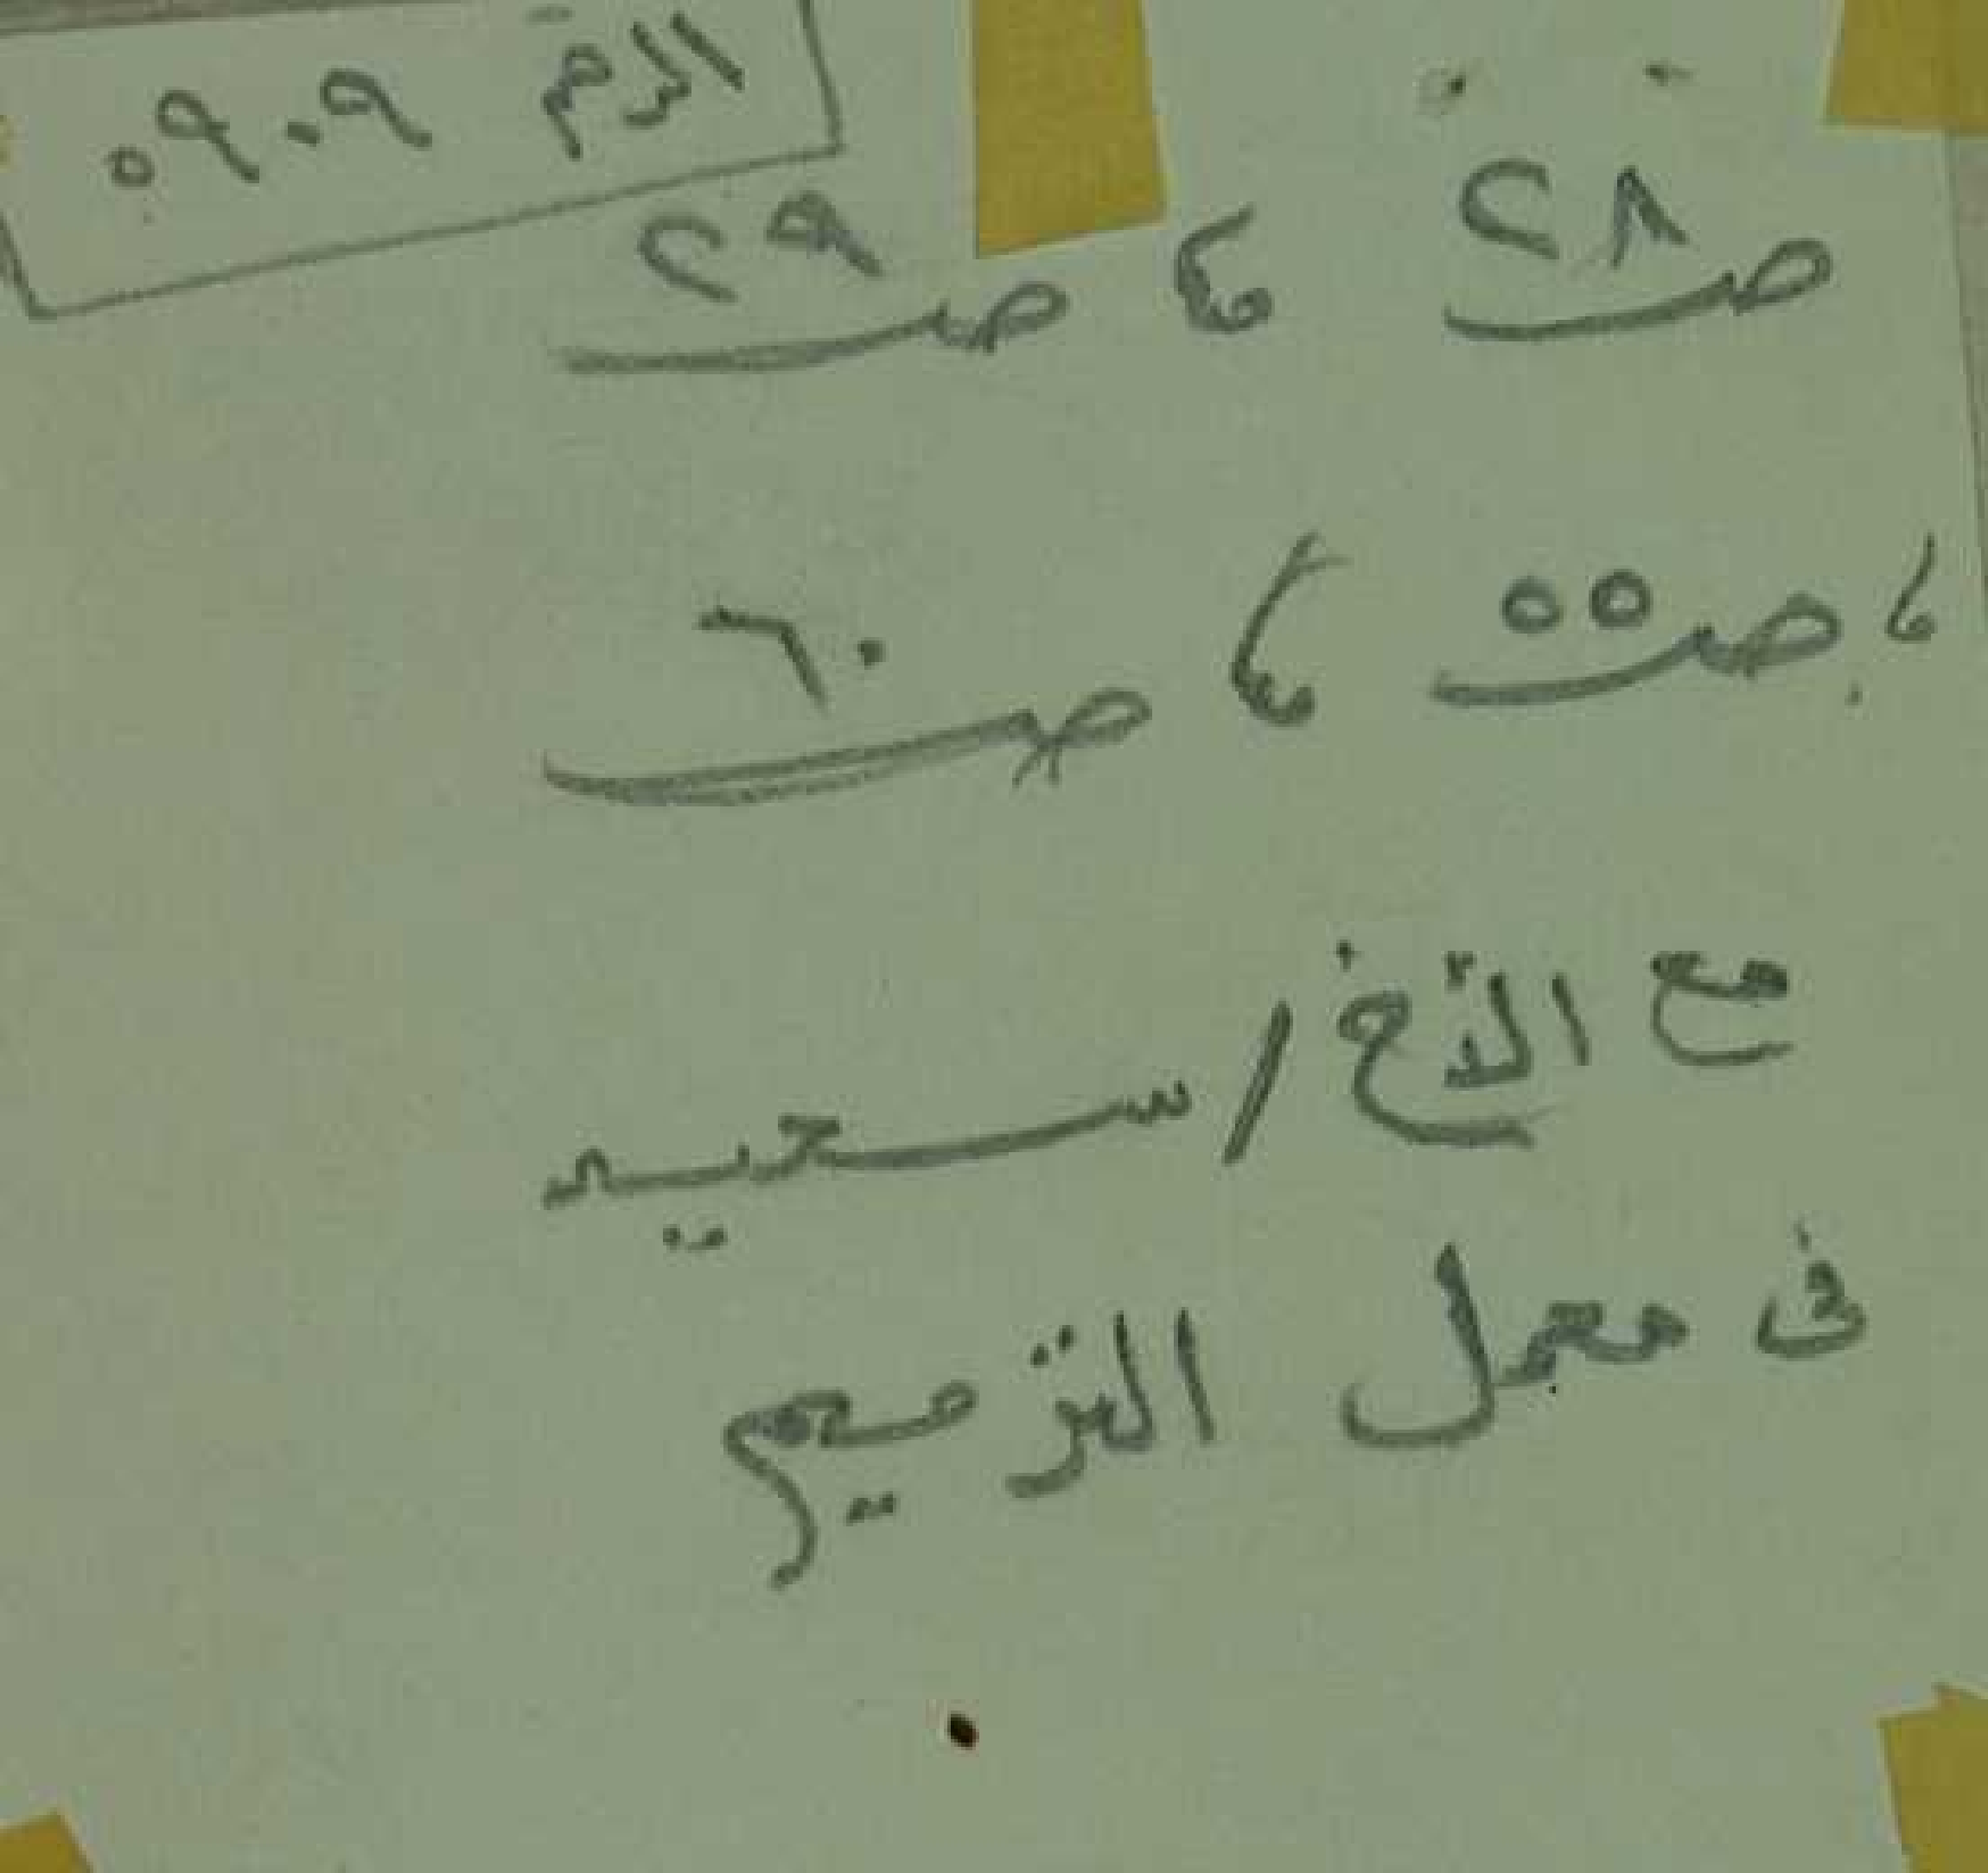 الرقم ٥٩٠٩
صـ ٢٨ ، صـ ٢٩
، صـ ٥٥ ، صـ ٦٠
مع الأخ / سعيد
فى معمل الترميم